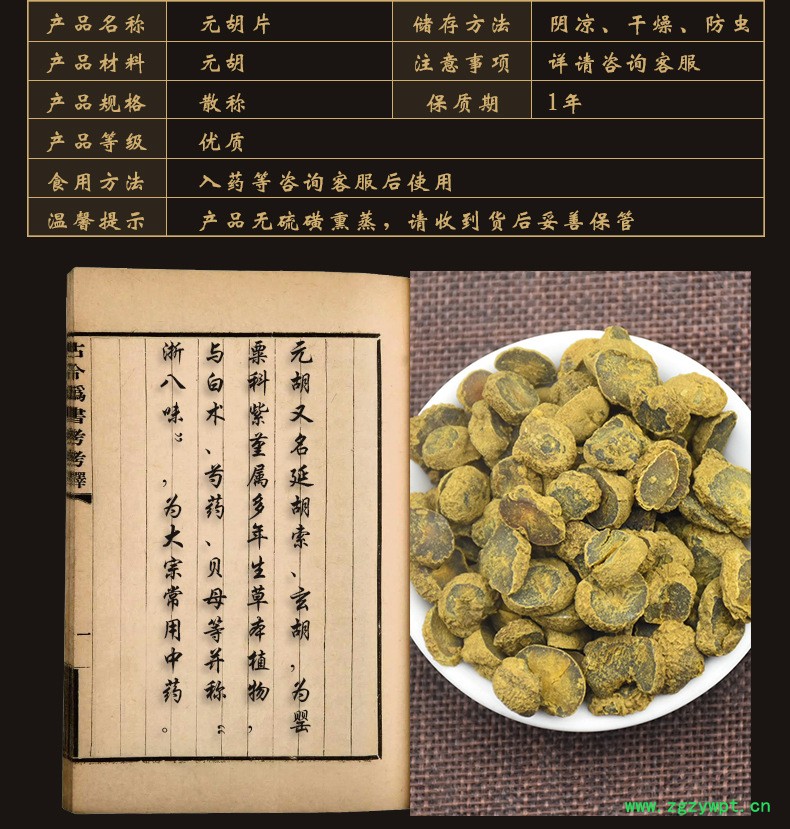 产品名称 元胡片 储存方法 阴凉、干燥、防虫
产品材料 元胡 注意事项 详请咨询客服
产品规格 散称 保质期 1年
产品等级 优质
食用方法 入药等咨询客服后使用
温馨提示 产品无硫磺熏蒸，请收到货后妥善保管
元胡又名延胡索、玄胡，为罂
粟科紫堇属多年生草本植物，
与白术、芍药、贝母等并称“
浙八味”，为大宗常用中药。
古今僞書考考釋
一
www.zgzywpt.cn